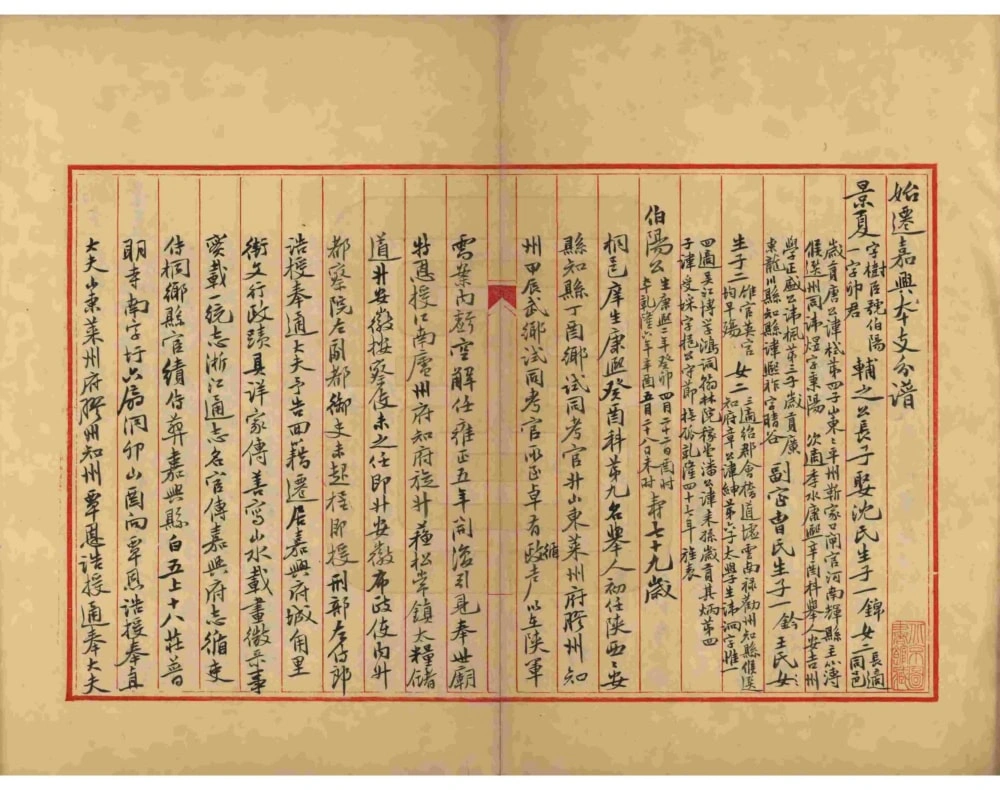 始遷嘉興本支分譜
景夏 字樹臣號伯陽 一字卯君 輔之公長子娶沈氏生子一錦女二 長適 同邑
歲貢唐公諱棧第四子山東之平州靳家口閘官河南輝縣主簿
候選州同諱煜字東陽 次適李水康熙辛酉科舉人安吉州
學正盛公諱楓第三子歲貢廣
東龍川縣知縣諱熙祚字晴谷 副室曹氏生子一鈐王氏女二
生子二 雄官英官 均早殤 女二 三適紹郡會稽道墟雲南祿勸州知縣候選 知府章公諱紳第六子太學生諱洞字惟
四適吳江博學鴻詞翰林院稼堂潘公諱耒孫歲貢其炳第四
子諱受 字 公守節 孤乾隆四十七年旌表
伯陽公 生康熙二年癸卯四月二十二日酉時 卒乾隆六年辛酉五月二十八日未時 壽七十九歲
桐邑庠生康熙癸酉科第九名舉人初任陝西 安
縣知縣丁酉鄉試同考官升山東萊州府膠州知
州甲辰武鄉試同考官 卓有循政 以 陝軍
需案內虧空解任雍正五年 復引見奉世廟
特恩授江南廬州府知府旋升蘇松常鎮太糧儲
道升安徽按察使未之任即升安徽布政使內升
都察院左副都御史未赴 即授刑部左侍郎
誥授奉通大夫予告回籍遷居嘉興府城甪里
街文行政蹟具詳家傳善寫山水載畫徵 事
實載一統志浙江通志名宦傳嘉興府志循吏
傳桐鄉縣宦績傳葬嘉興縣白五上十八莊普
明寺南字圩 扇洞卯山酉向覃恩誥授奉直
大夫山東萊州府膠州知州覃恩誥授通奉大夫